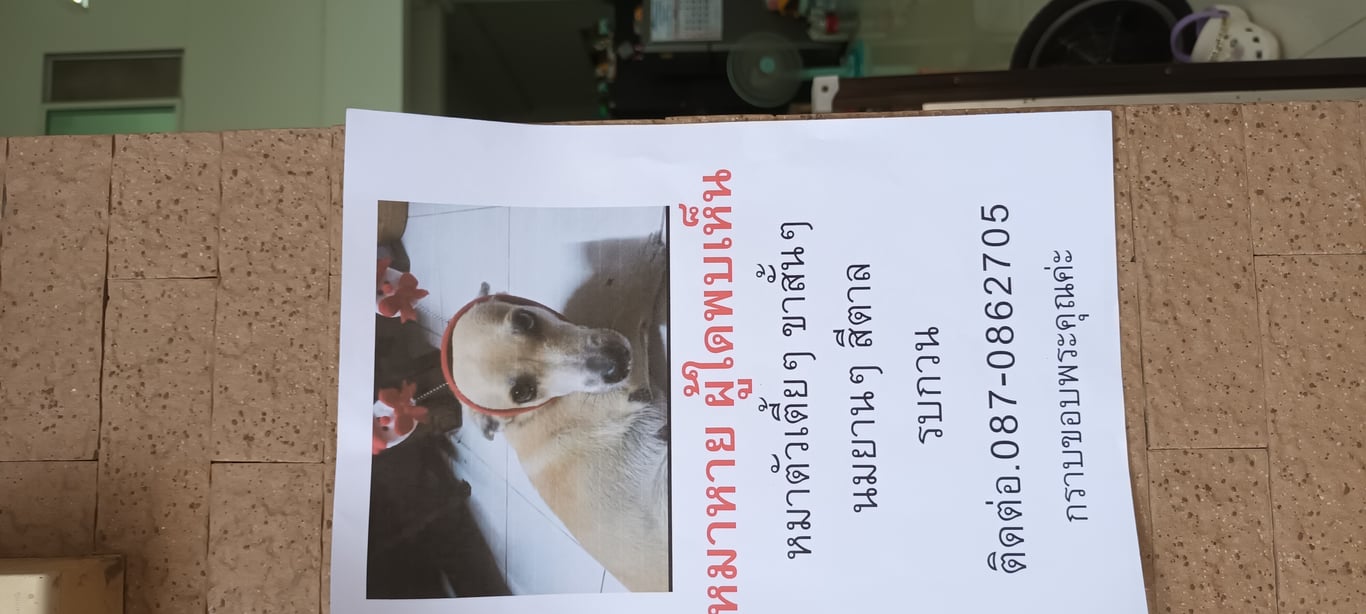 หมาหาย ผู้ใดพบเห็น
หมาตัวเตี้ยๆ ขาสั้นๆ
นมยานๆ สีตาล
รบกวน
ติดต่อ.087-0862705
กราบขอบพระคุณค่ะ